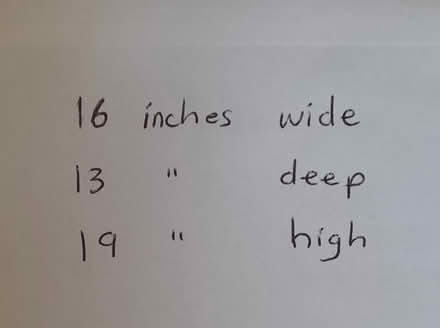 16 inches wide
13 " deep
19 " high